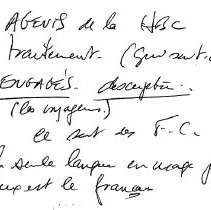 AGENTS de la HBC
traitement. (Qui sont-
ENGAGÉS. description.
(les voyageurs.)
ce sont des F.C.
seule langue en usage
est le français